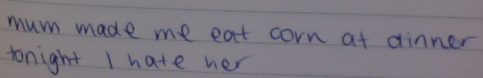 mum made me eat corn at dinner
tonight I hate her